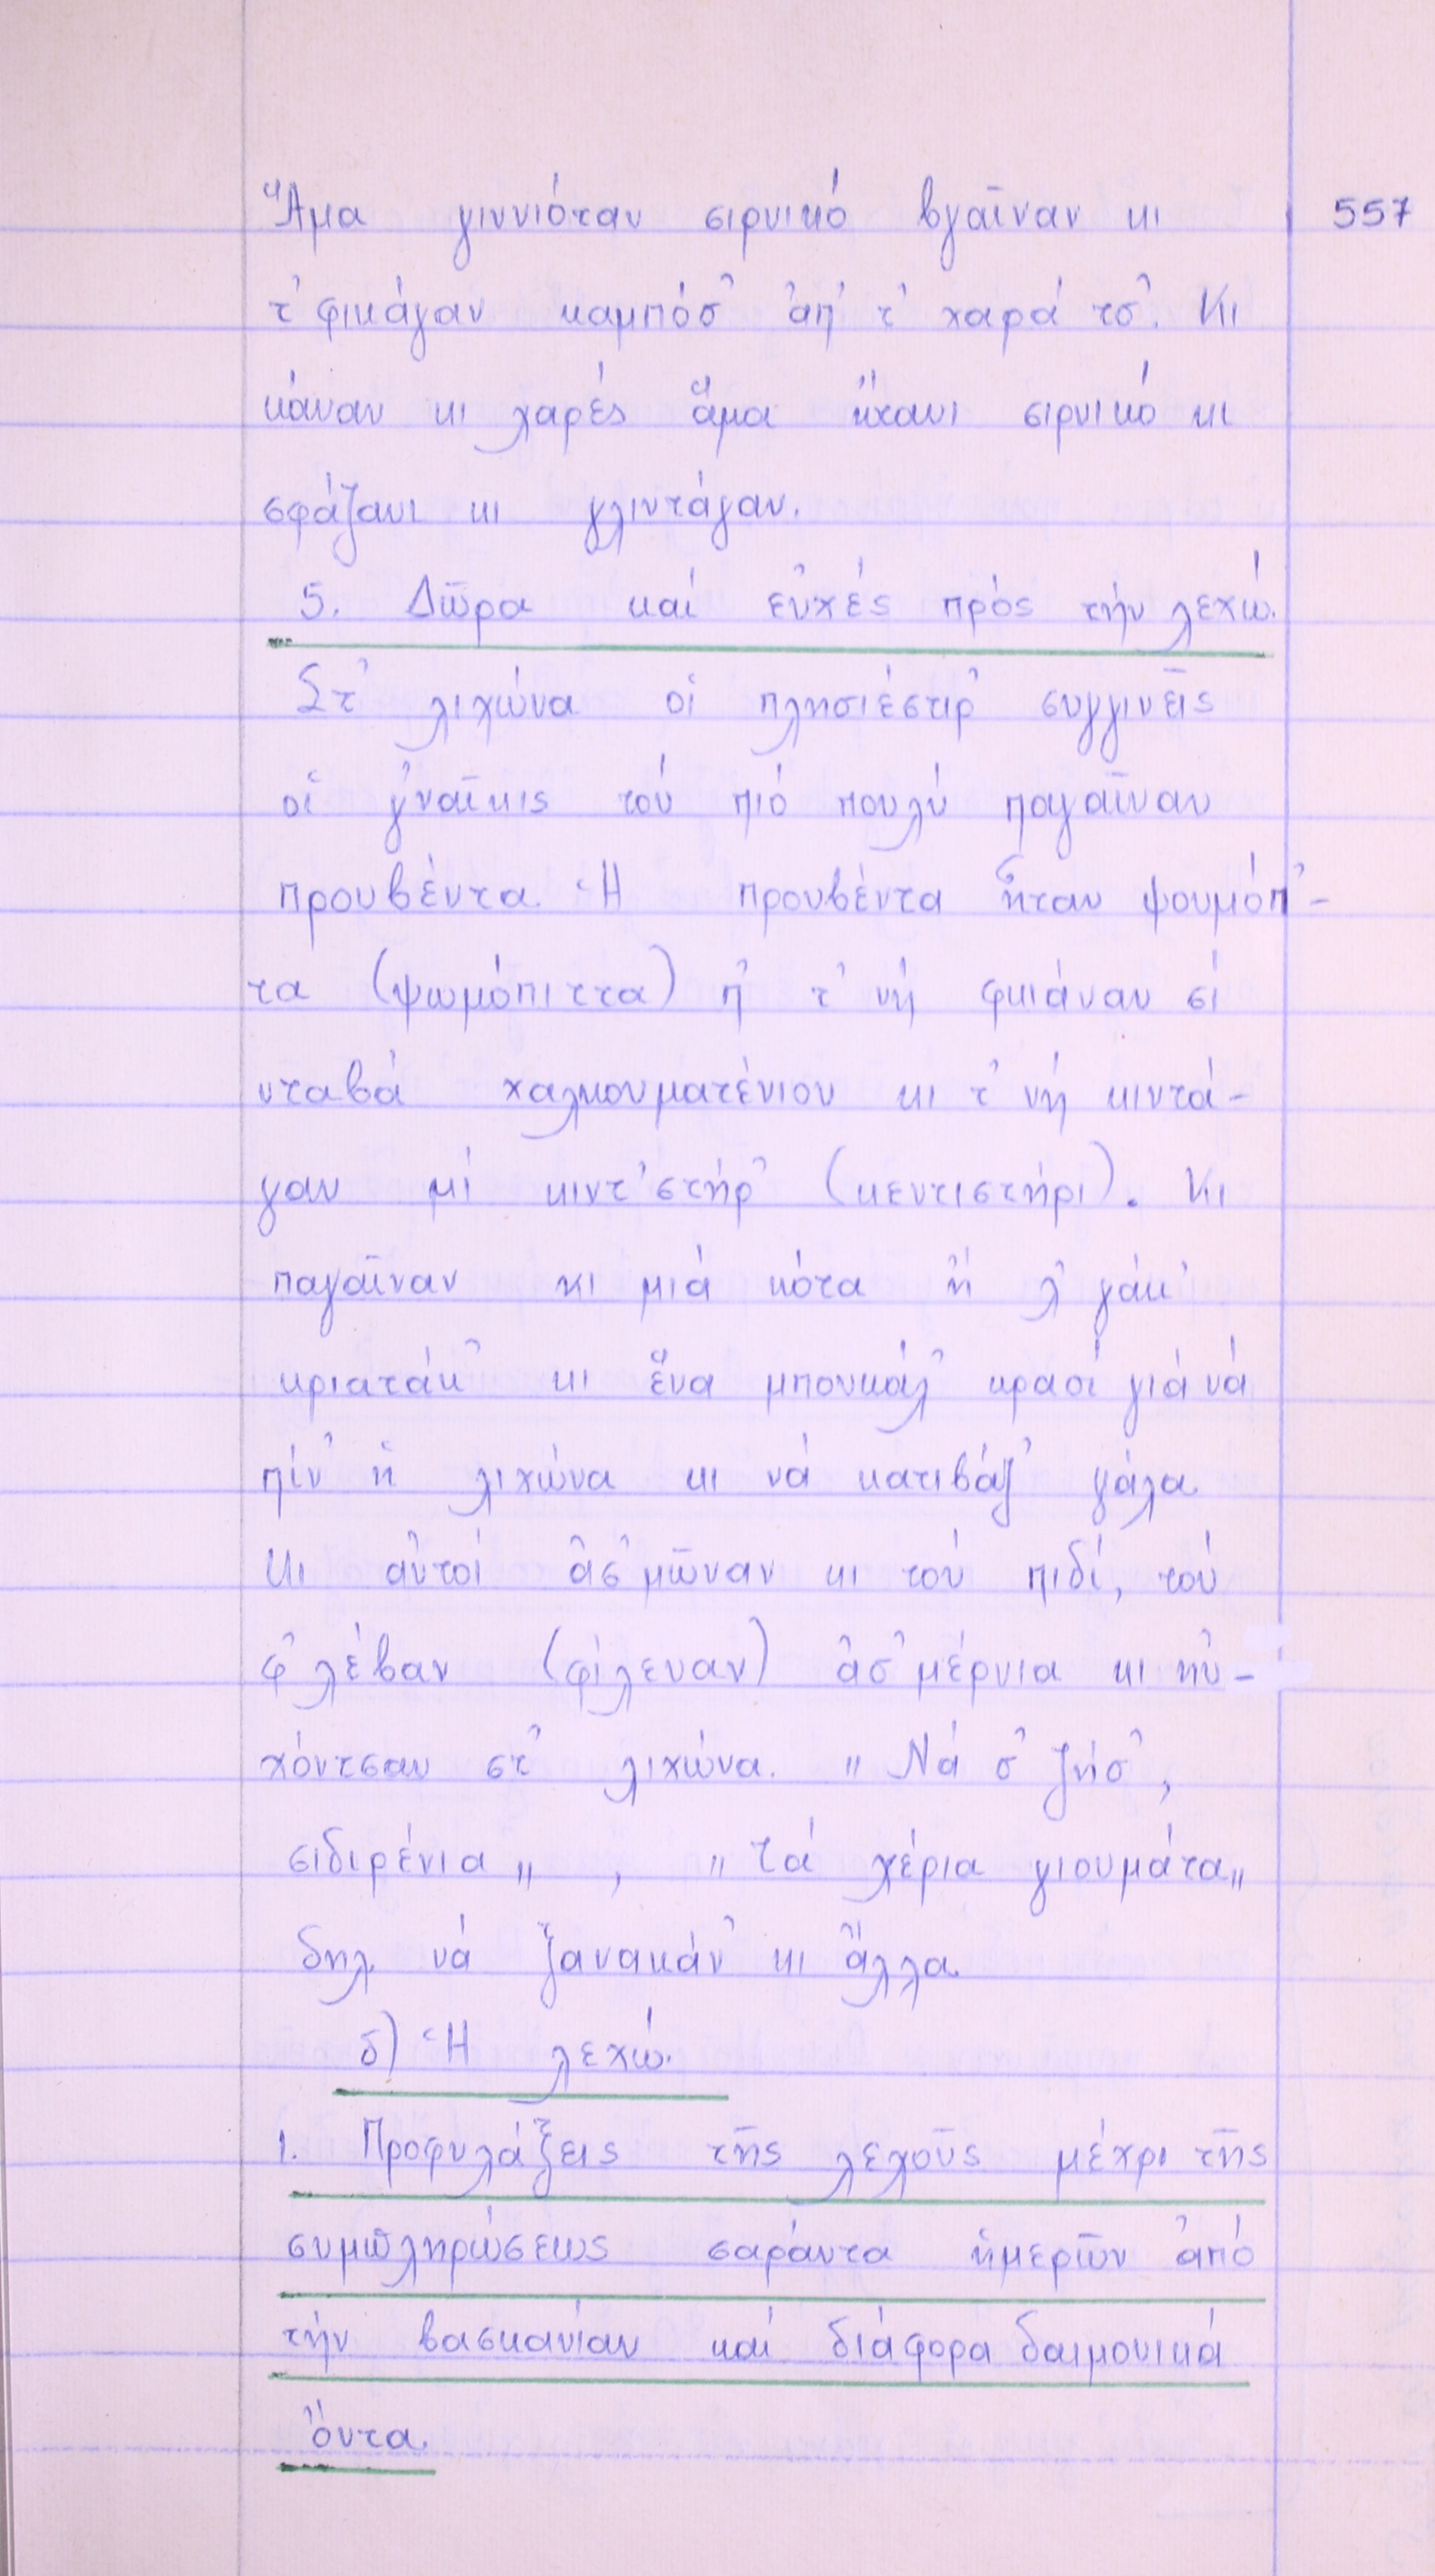 Ἅμα γιννιόταν σιρνικό βγαῖναν κι
557
τ᾿ φικάγαν καμπόσ᾿ ἀπ᾿ τ᾿ χαρά τσ᾿. Κι
κάναν κι χαρές ἅμα ἤτανι σιρνικό κι
σφάζανι κι γλιντάγαν.
5. Δῶρα καί εὐχές πρός τήν λεχώ.
Στ᾿ λιχώνα οἱ πλησιέστιρ᾿ συγγινεῖς
οἱ γ᾿ναῖκις τού πιό πουλύ παγαῖναν
προυβέντα. Ἡ προυβέντα ἦταν ψουμόπ᾿-
τα (ψωμόπιττα) π᾿ τ᾿ νή φκιάναν σί
νταβά χαλκουματένιου κι τ᾿ νή κιντά-
γαν μί κιντ᾿στήρ᾿ (κεντιστήρι). Κι
παγαῖναν κι μιά κότα ἤ λ᾿γάκ᾿
κριατάκ᾿ κι ἕνα μπουκάλ᾿ κρασί γιά νά
πίν᾿ ἡ λιχώνα κι νά κατιβάζ᾿ γάλα.
Κι αὐτοί ἀσ᾿μῶναν κι τού πιδί, τού
φ᾿λέβαν (φίλευαν) ἀσ᾿μέρνια κι εὐ-
χόντσαν στ᾿ λιχώνα. "Νά σ᾿ ζήσ᾿,
σιδιρένια", "τά χέρια γιουμάτα"
δηλ. νά ξανακάν᾿ κι ἄλλα.
δ) Ἡ λεχώ.
1. Προφυλάξεις τῆς λεχοῦς μέχρι τῆς
συμπληρώσεως σαράντα ἡμερῶν ἀπό
τήν βασκανίαν καί διάφορα δαιμονικά
ὄντα.